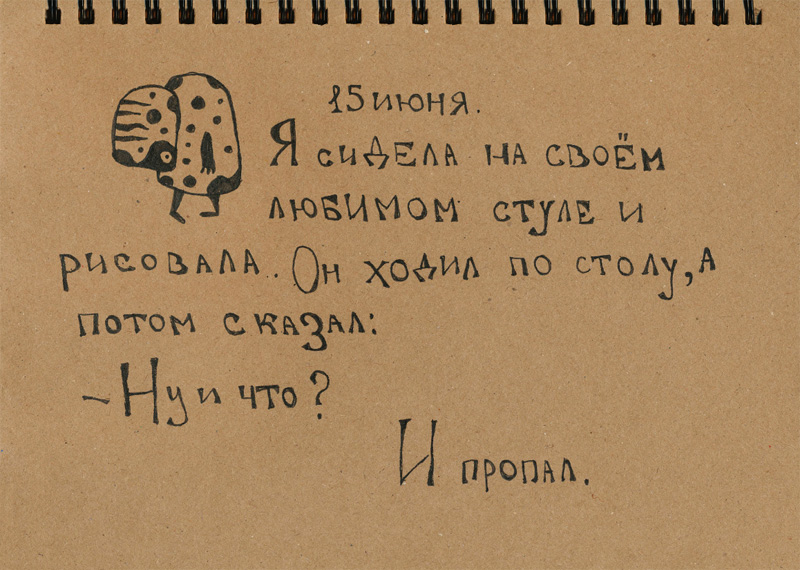 15 июня.
Я сидела на своём
любимом стуле и
рисовала.. Он ходил по столу, а
потом сказал:
- Ну и что?
И пропал.